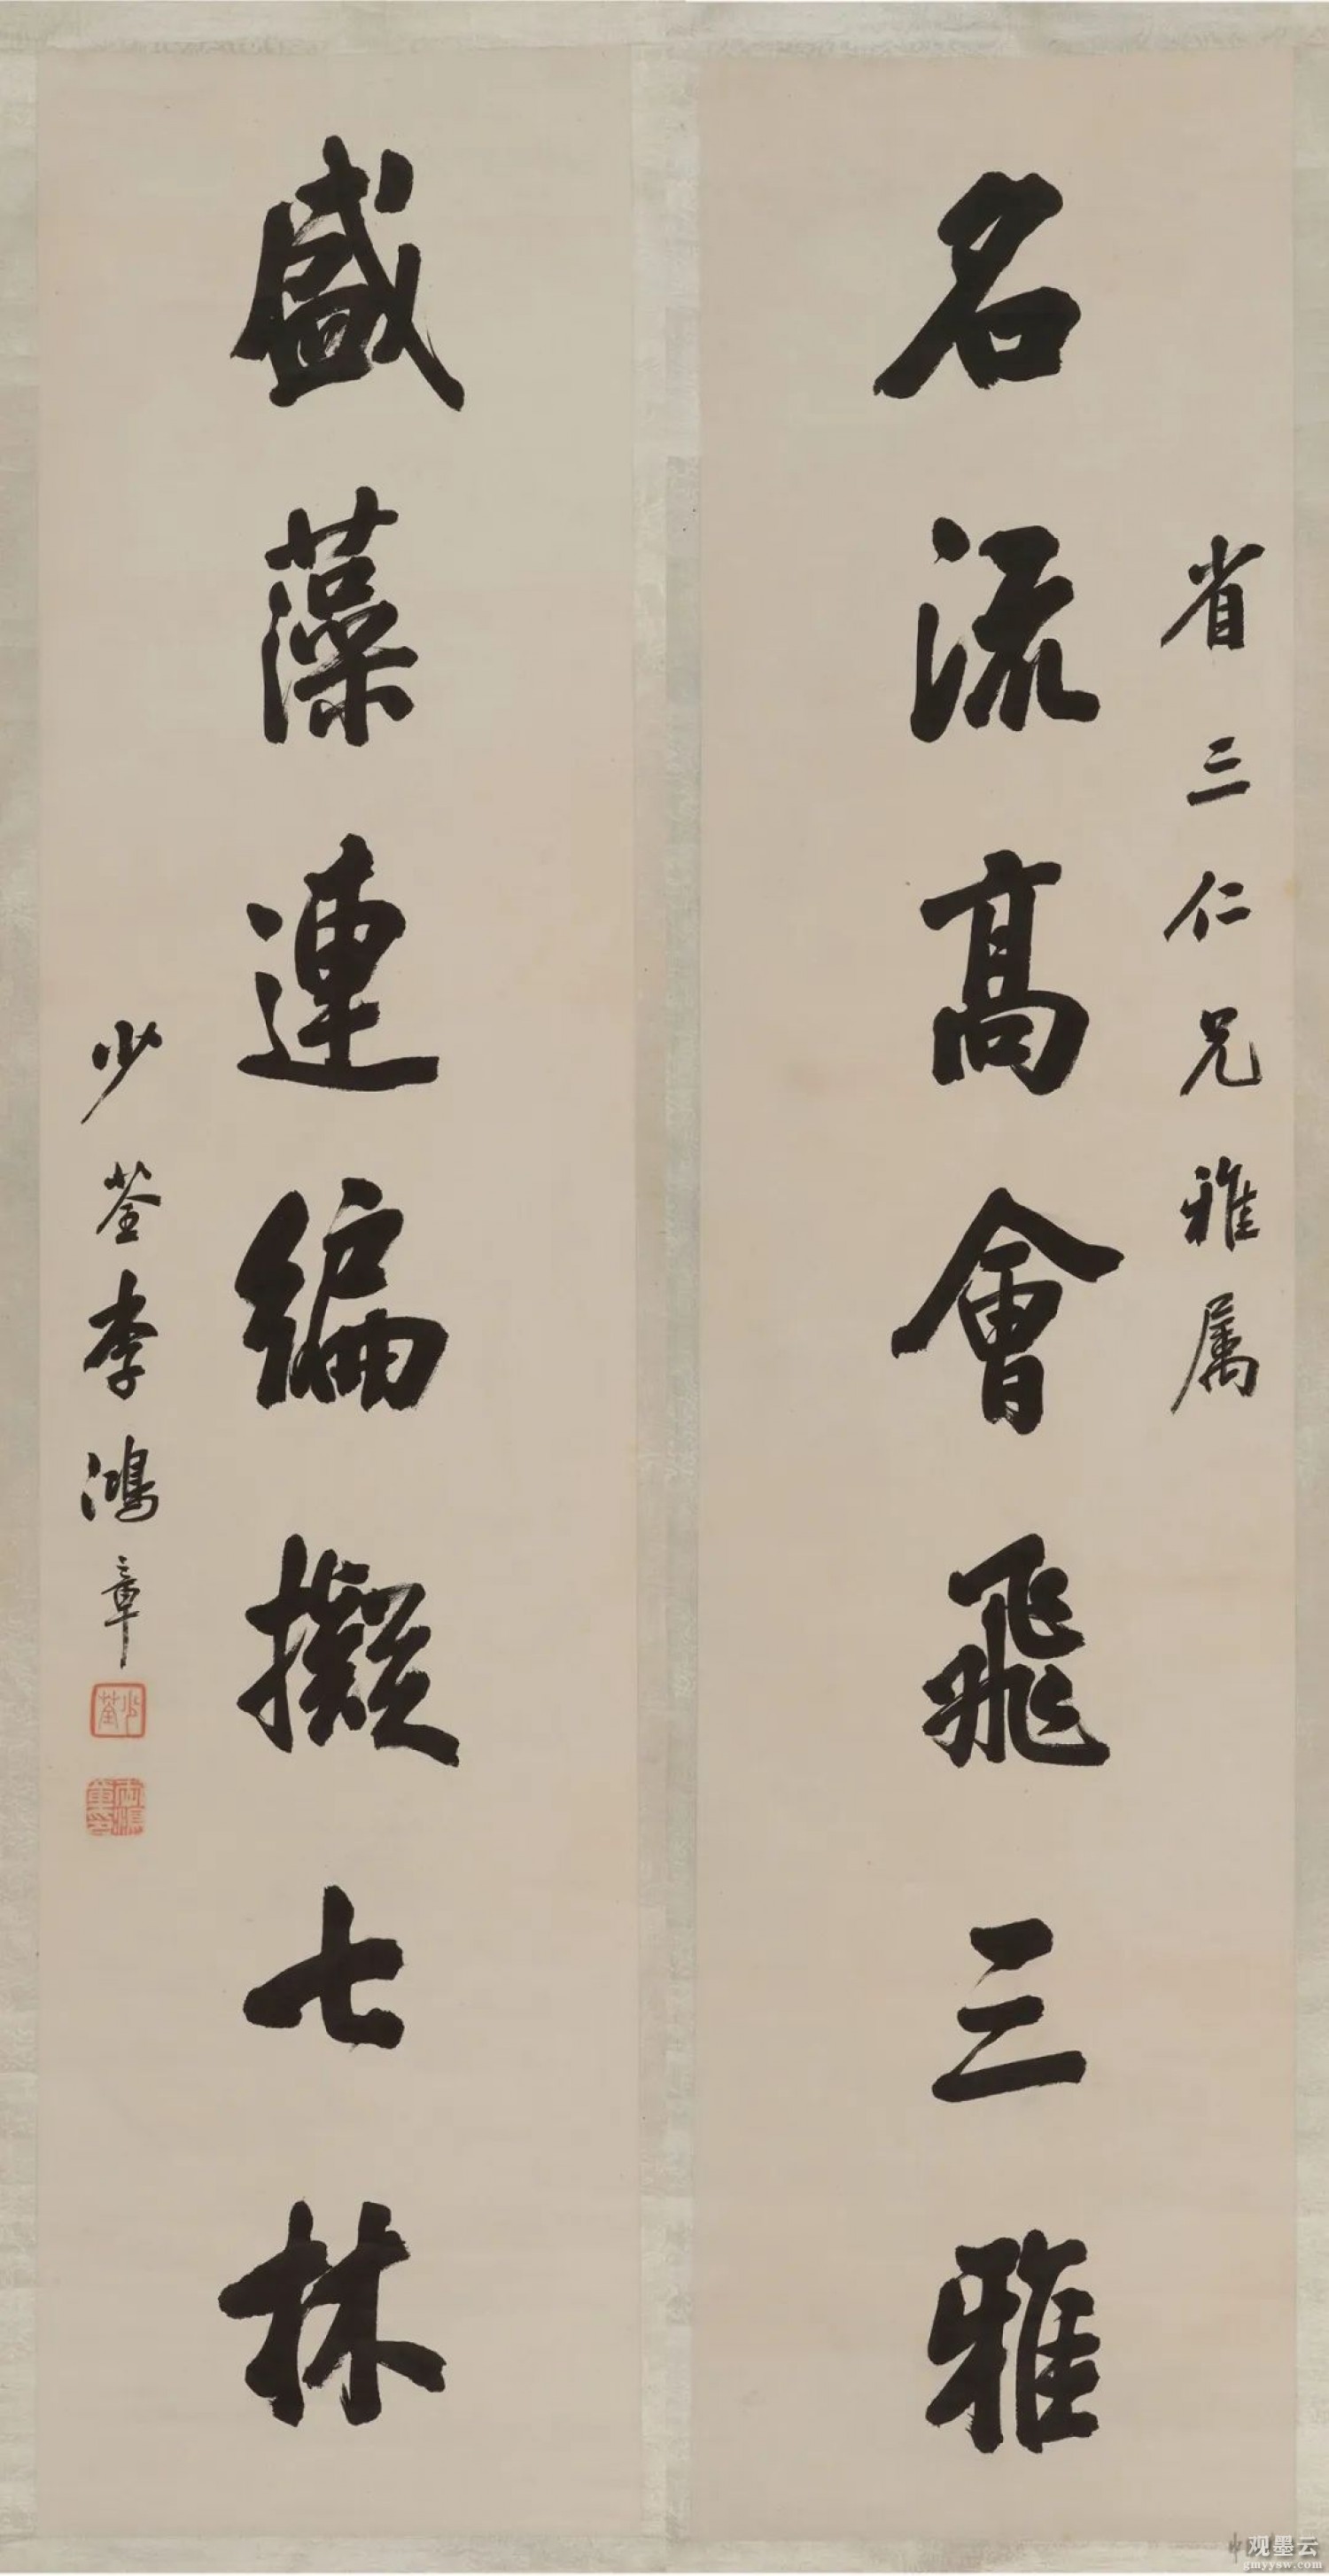 省三仁兄雅属
名流高會飛三雅
盛藻連編擬七林
少荃李鴻章
少荃
观墨云
gmyysw.com